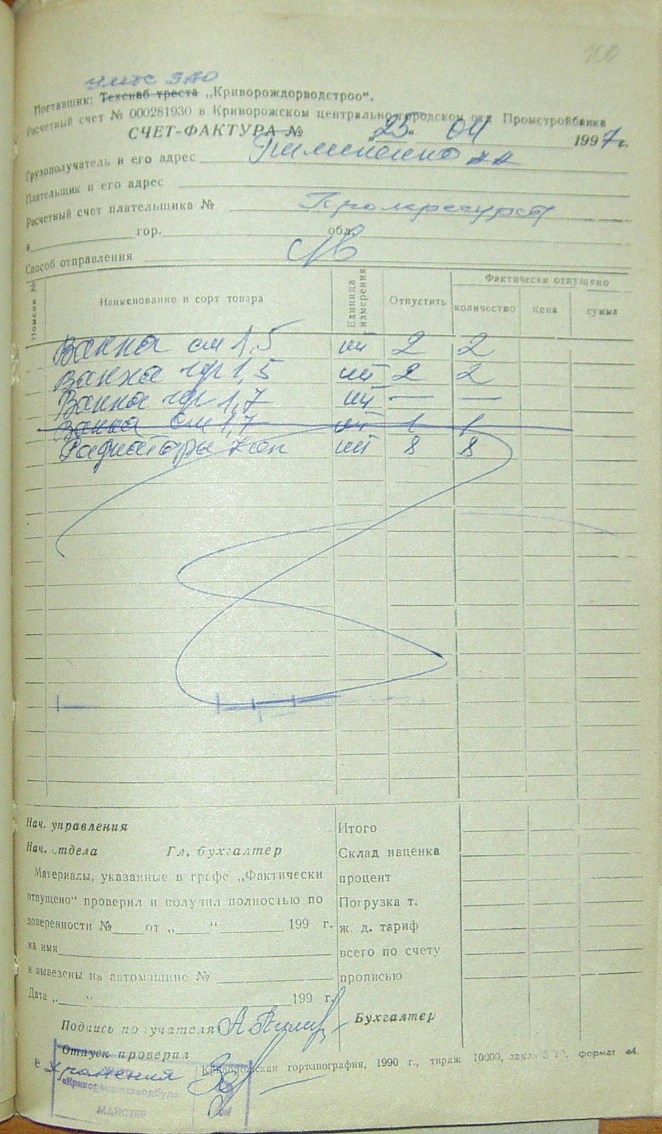 100
УМТС ЗАО
Поставщик: Техснаб треста „Криворождорводстрой",
Расчетный счет № 000281930 в Криворожском центрально-городском отд. Промстройбанка
СЧЕТ-ФАКТУРА № „23" 04 1997 г.
Грузополучатель и его адрес
Плательщик и его адрес
Расчетный счет плательщика № Промресурсы
в гор. обл.
Способ отправления
Наименование и сорт товара Единица измерения Отпустить Фактически отпущено
количество цена сумма
Ванна см 1,5 шт 2 2
Ванна чуг 1,5 шт 2 2
Ванна чуг 1,7 шт — —
Ванна см 1,7 шт 1 1
Радиаторы шт 8 8
Нач. управления Итого
Нач. отдела Гл. бухгалтер Склад наценка
Материалы, указанные в графе „Фактически процент
отпущено" проверил и получил полностью по Погрузка т.
доверенности № от „ " 199 г. ж. д. тариф
на имя всего по счету
и вывезены на автомашине № прописью
Дата „ " 199 г.
Подпись получателя Бухгалтер
Отпуск проверил
Криворожская гортипография, 1990 г., тираж 10000, заказ формат
МАЙСТЕР